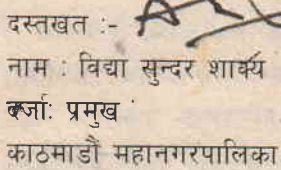 दस्तखत :-
नाम : विद्या सुन्दर शाक्य
दर्जाः प्रमुख
काठमाडौं महानगरपालिका